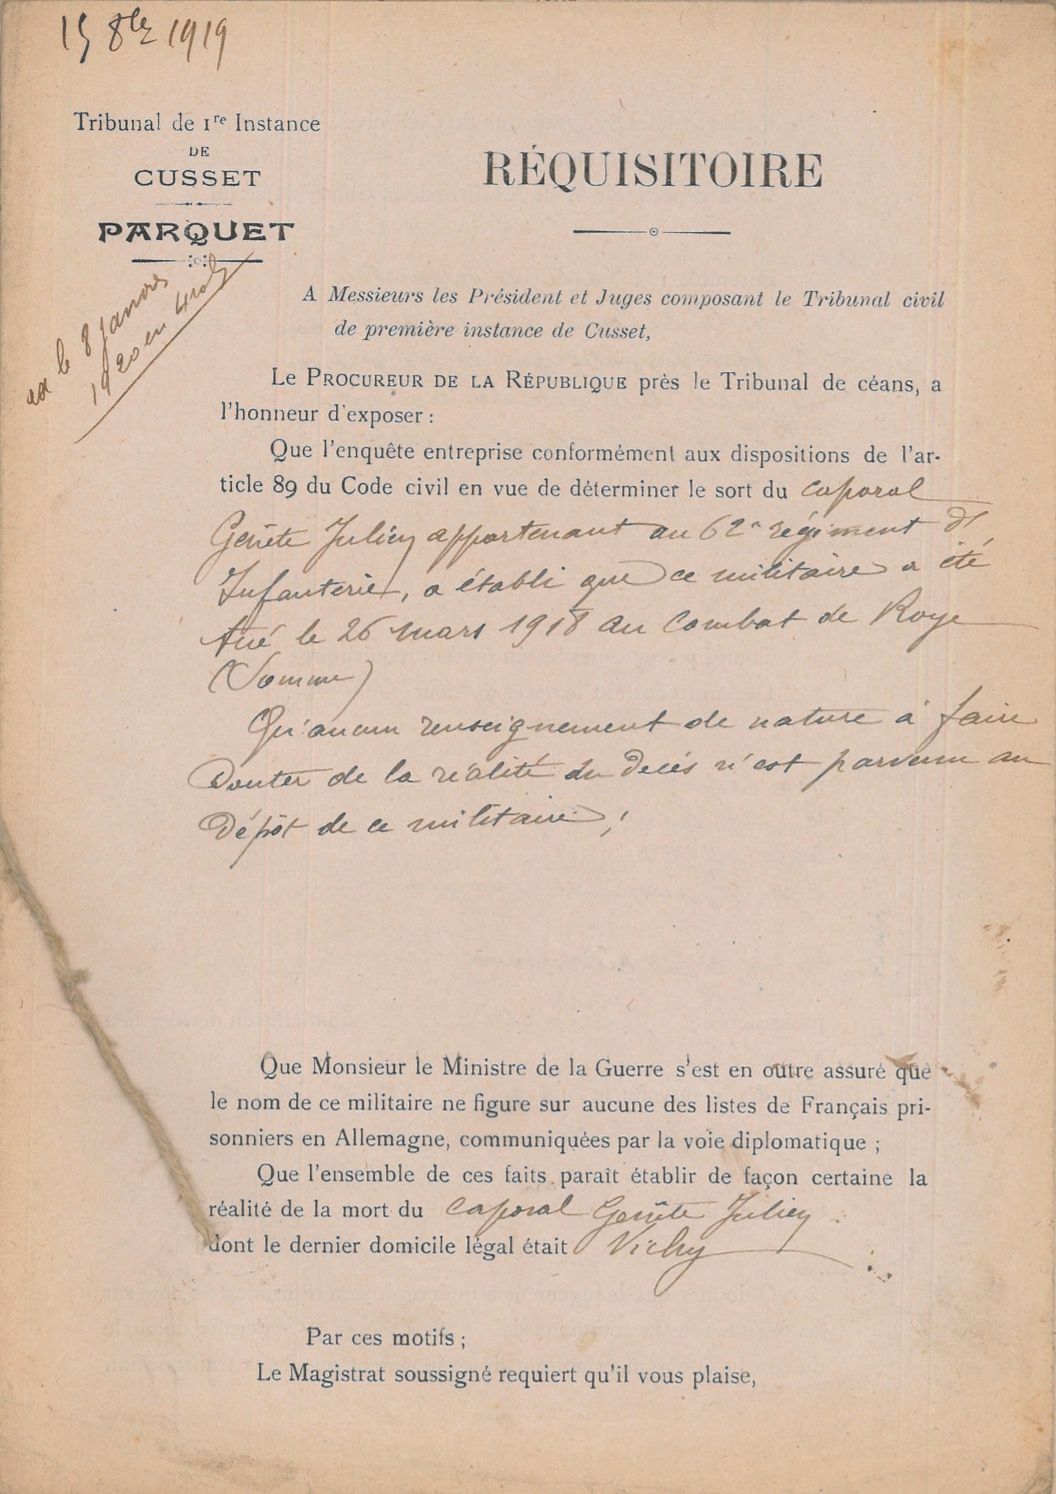 15 8bre 1919
Tribunal de 1re Instance
DE
CUSSET
PARQUET
le 8 janvier
1920 en
RÉQUISITOIRE
A Messieurs les Président et Juges composant le Tribunal civil
de première instance de Cusset,
Le PROCUREUR DE LA RÉPUBLIQUE près le Tribunal de céans, a
l'honneur d'exposer :
Que l'enquête entreprise conformément aux dispositions de l'ar-
ticle 89 du Code civil en vue de déterminer le sort du caporal
Genête Julien appartenant au 62e régiment d'
Infanterie, a établi que ce militaire a été
tué le 26 mars 1918 au combat de Roye
(Somme)
Qu'aucun renseignement de nature à faire
douter de la réalité du décès n'est parvenu au
dépôt de ce militaire ;
Que Monsieur le Ministre de la Guerre s'est en outre assuré que
le nom de ce militaire ne figure sur aucune des listes de Français pri-
sonniers en Allemagne, communiquées par la voie diplomatique ;
Que l'ensemble de ces faits paraît établir de façon certaine la
réalité de la mort du caporal Genête Julien
dont le dernier domicile légal était Vichy
Par ces motifs ;
Le Magistrat soussigné requiert qu'il vous plaise,